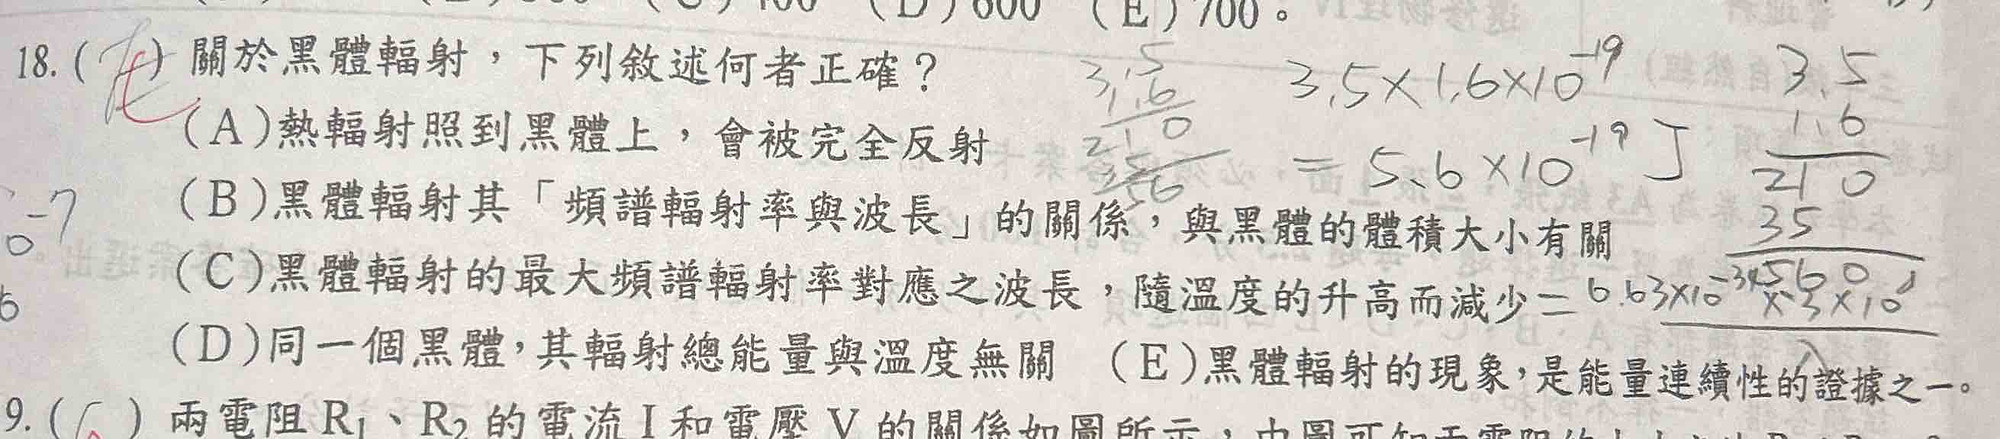 (D)600 (E)700。
18.( )關於黑體輻射，下列敘述何者正確？
(A)熱輻射照到黑體上，會被完全反射
(B)黑體輻射其「頻譜輻射率與波長」的關係，與黑體的體積大小有關
(C)黑體輻射的最大頻譜輻射率對應之波長，隨溫度的升高而減少
(D)同一個黑體，其輻射總能量與溫度無關 (E)黑體輻射的現象，是能量連續性的證據之一。
9.( ) 兩電阻 R₁、R₂ 的電流 I 和電壓 V 的關係如圖所示
3.5
1.6
210
3.5×1.6×10⁻¹⁹
= 5.6×10⁻¹⁹ J
3.5
1.6
210
35
560
= 6.63×10⁻³⁴×3×10⁸
λ